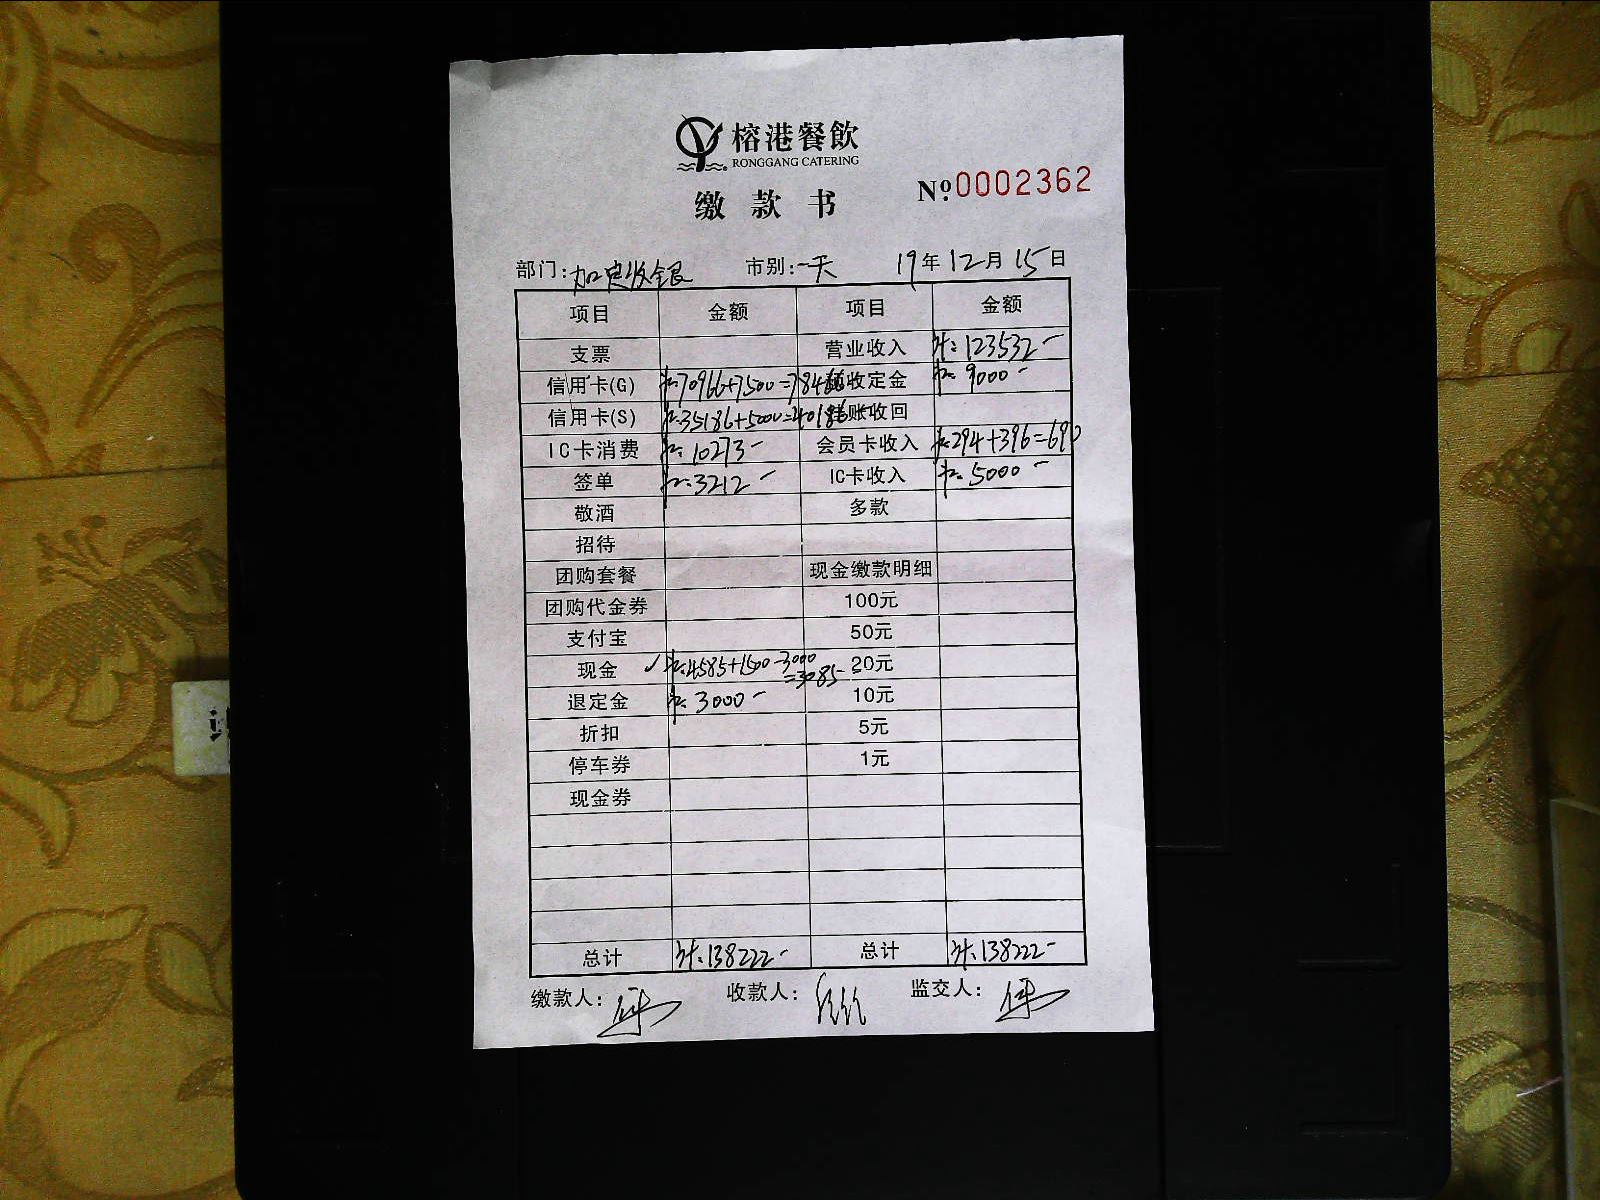 榕港餐飲
RONGGANG CATERING
缴款书 №0002362
部门: 收银 市别:一天 19年12月15日
项目 金额 项目 金额
支票 营业收入 计:123532-
信用卡(G) 70966+7500=78466 收定金 9000-
信用卡(S) 35186+5000=40186 挂账收回
IC卡消费 10273- 会员卡收入 294+396=690
签单 3212- IC卡收入 5000-
敬酒 多款
招待
团购套餐 现金缴款明细
团购代金券 100元
支付宝 50元
现金 ✓ 4585+1500-3000=3085- 20元
退定金 3000- 10元
折扣 5元
停车券 1元
现金券
总计 计:138222- 总计 计:138222-
缴款人: 收款人: 监交人: